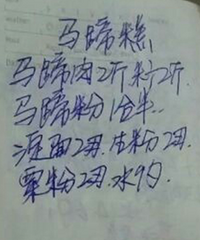 马蹄糕
马蹄肉2斤 糖2斤.
马蹄粉1仓半.
澄面2两. 生粉2两.
粟粉2两. 水9勺.